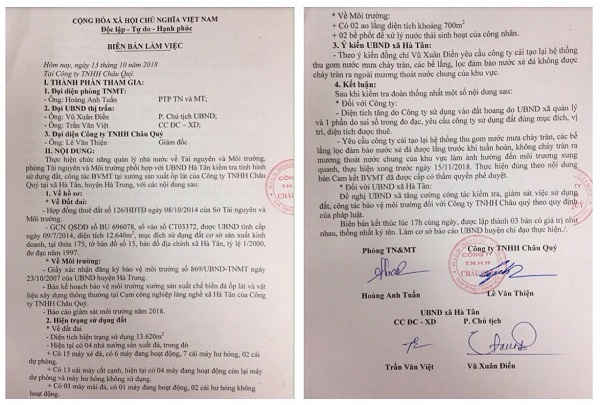 CỘNG HÒA XÃ HỘI CHỦ NGHĨA VIỆT NAM
Độc lập - Tự do - Hạnh phúc
BIÊN BẢN LÀM VIỆC
Hôm nay, ngày 13 tháng 10 năm 2018
Tại Công ty TNHH Châu Quý.
I. THÀNH PHẦN THAM GIA:
1. Đại diện phòng TNMT:
- Ông: Hoàng Anh Tuấn PTP TN và MT;
2. Đại diện UBND thị trấn:
- Ông: Vũ Xuân Điền P. Chủ tịch UBND;
- Ông: Trần Văn Việt CC ĐC – XD;
3. Đại diện Công ty TNHH Châu Quý
- Ông: Lê Văn Thiện Giám đốc
II. NỘI DUNG:
Thực hiện chức năng quản lý nhà nước về Tài nguyên và Môi trường,
phòng Tài nguyên và Môi trường phối hợp với UBND Hà Tân kiểm tra tình hình
sử dụng đất, công tác BVMT tại xưởng sản xuất ốp lát của Công ty TNHH Châu
Quý tại xã Hà Tân, huyện Hà Trung, với các nội dung sau:
1. Về hồ sơ:
* Về Đất đai:
- Hợp đồng thuê đất số 126/HĐTĐ ngày 08/10/2014 của Sở Tài nguyên và
Môi trường.
- GCN QSDĐ số BU 696078, số vào sổ CT03372, được UBND tỉnh cấp
ngày 09/7/2014, diện tích 12.640m², mục đích sử dụng đất cơ sở sản xuất kinh
doanh, tại thửa 175, tờ bản đồ số 15, bản đồ địa chính xã Hà Tân, tỷ lệ 1/2000,
đo đạc năm 1997.
* Về Môi trường:
- Giấy xác nhận đăng ký bảo vệ môi trường số 869/UBND-TNMT ngày
23/10/2007 của UBND huyện Hà Trung.
- Bản kế hoạch bảo vệ môi trường xưởng sản xuất chế biến đá ốp lát và vật
liệu xây dựng thông thường tại Cụm công nghiệp làng nghề xã Hà Tân của Công
ty TNHH Châu Quý.
- Báo cáo giám sát môi trường năm 2018.
2. Hiện trạng sử dụng đất
* Về đất đai
- Diện tích hiện trạng sử dụng 13.620m²
- Hiện tại có 04 nhà xưởng sản xuất đá, trong đó
+ Có 15 máy xẻ đá, có 6 máy đang hoạt động, 7 cái máy hư hỏng, 02 cái
dự phòng.
+ Có 13 cái máy cắt cạnh, hiện tại có 04 máy đang hoạt động còn lại máy dự
phòng và máy hư hỏng không sử dụng.
+ Có 03 máy mài đá, có 01 máy đang hoạt động, 02 cái hư hỏng không
hoạt động.
* Về Môi trường:
+ Có 02 ao lắng diện tích khoảng 700m²
+ 02 bể phốt để xử lý nước thải sinh hoạt của công nhân.
3. Ý kiến UBND xã Hà Tân:
- Theo ý kiến đồng chí Vũ Xuân Điền yêu cầu công ty cải tạo lại hệ thống
thu gom nước mưa chảy tràn, các bể lắng, lọc đảm bảo nước xẻ đá không được
chảy tràn ra ngoài mương thoát nước chung của khu vực.
4. Kết luận:
Sau khi kiểm tra đoàn thống nhất một số nội dung sau:
* Đối với Công ty:
- Diện tích tăng do Công ty sử dụng vào đất hoang do UBND xã quản lý
và 1 phần do sai số trong đo đạc, yêu cầu công ty sử dụng đất đúng mục đích, vị
trí, diện tích được thuê.
- Yêu cầu công ty cải tạo lại hệ thống thu gom nước mưa chảy tràn, các bể
lắng, lọc đảm bảo nước xẻ đá được lắng trước khi tuần hoàn, không chảy tràn ra
mương thoát nước chung của khu vực làm ảnh hưởng đến môi trường xung
quanh, thực hiện xong trước ngày 15/11/2018. Thực hiện đúng theo nội dung
bản Cam kết BVMT đã được cấp có thẩm quyền phê duyệt.
* Đối với UBND xã Hà Tân:
Đề nghị UBND xã tăng cường công tác kiểm tra, giám sát việc sử dụng
đất, công tác bảo vệ môi trường đối với Công ty TNHH Châu Quý theo quy định
của pháp luật.
Biên bản kết thúc 17h cùng ngày, được lập thành 03 bản có giá trị như
nhau, thống nhất ký tên. Làm cơ sở báo cáo UBND huyện chỉ đạo thực hiện./.
Phòng TN&MT Công ty TNHH Châu Quý
CÔNG TY
TNHH
CHÂU QUÝ
Hoàng Anh Tuấn Lê Văn Thiện
UBND xã Hà Tân
CC ĐC - XD P. Chủ tịch
Trần Văn Việt Vũ Xuân Điền